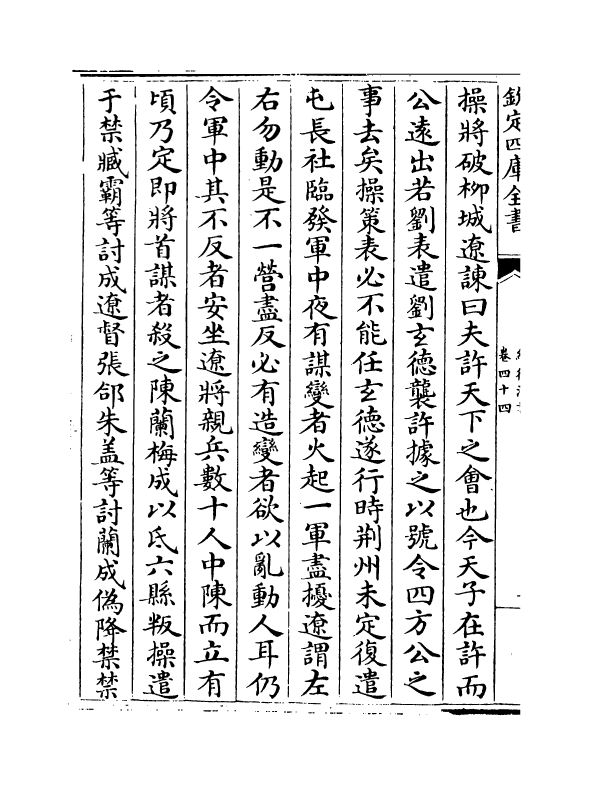 欽定四庫全書
卷四十四
操將破柳城遼諫曰夫許天下之會也今天子在許而
公遠出若劉表遣劉玄德襲許據之以號令四方公之
事去矣操策表必不能任玄德遂行時荆州未定復遣
屯長社臨發軍中夜有謀變者火起一軍盡擾遼謂左
右勿動是不一營盡反必有造變者欲以亂動人耳仍
令軍中其不反者安坐遼將親兵數十人中陳而立有
頃乃定即將首謀者殺之陳蘭梅成以氐六縣叛操遣
于禁臧霸等討成遼督張郃朱盖等討蘭成偽降禁禁